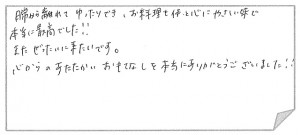 日常から離れて ゆったりでき、お料理も体と心にやさしい味で
本当に最高でした!!
また ぜったいに来たいです。
心からの あたたかい おもてなしを本当にありがとうございました!!